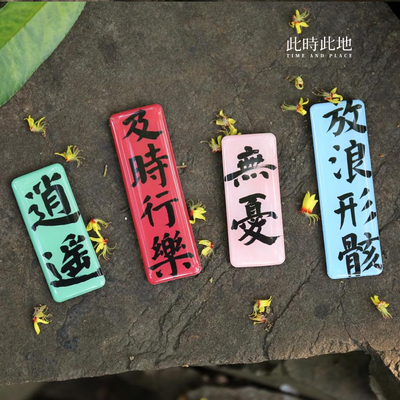 此時此地
TIME AND PLACE
逍遥
及時行樂
無憂
放浪形骸